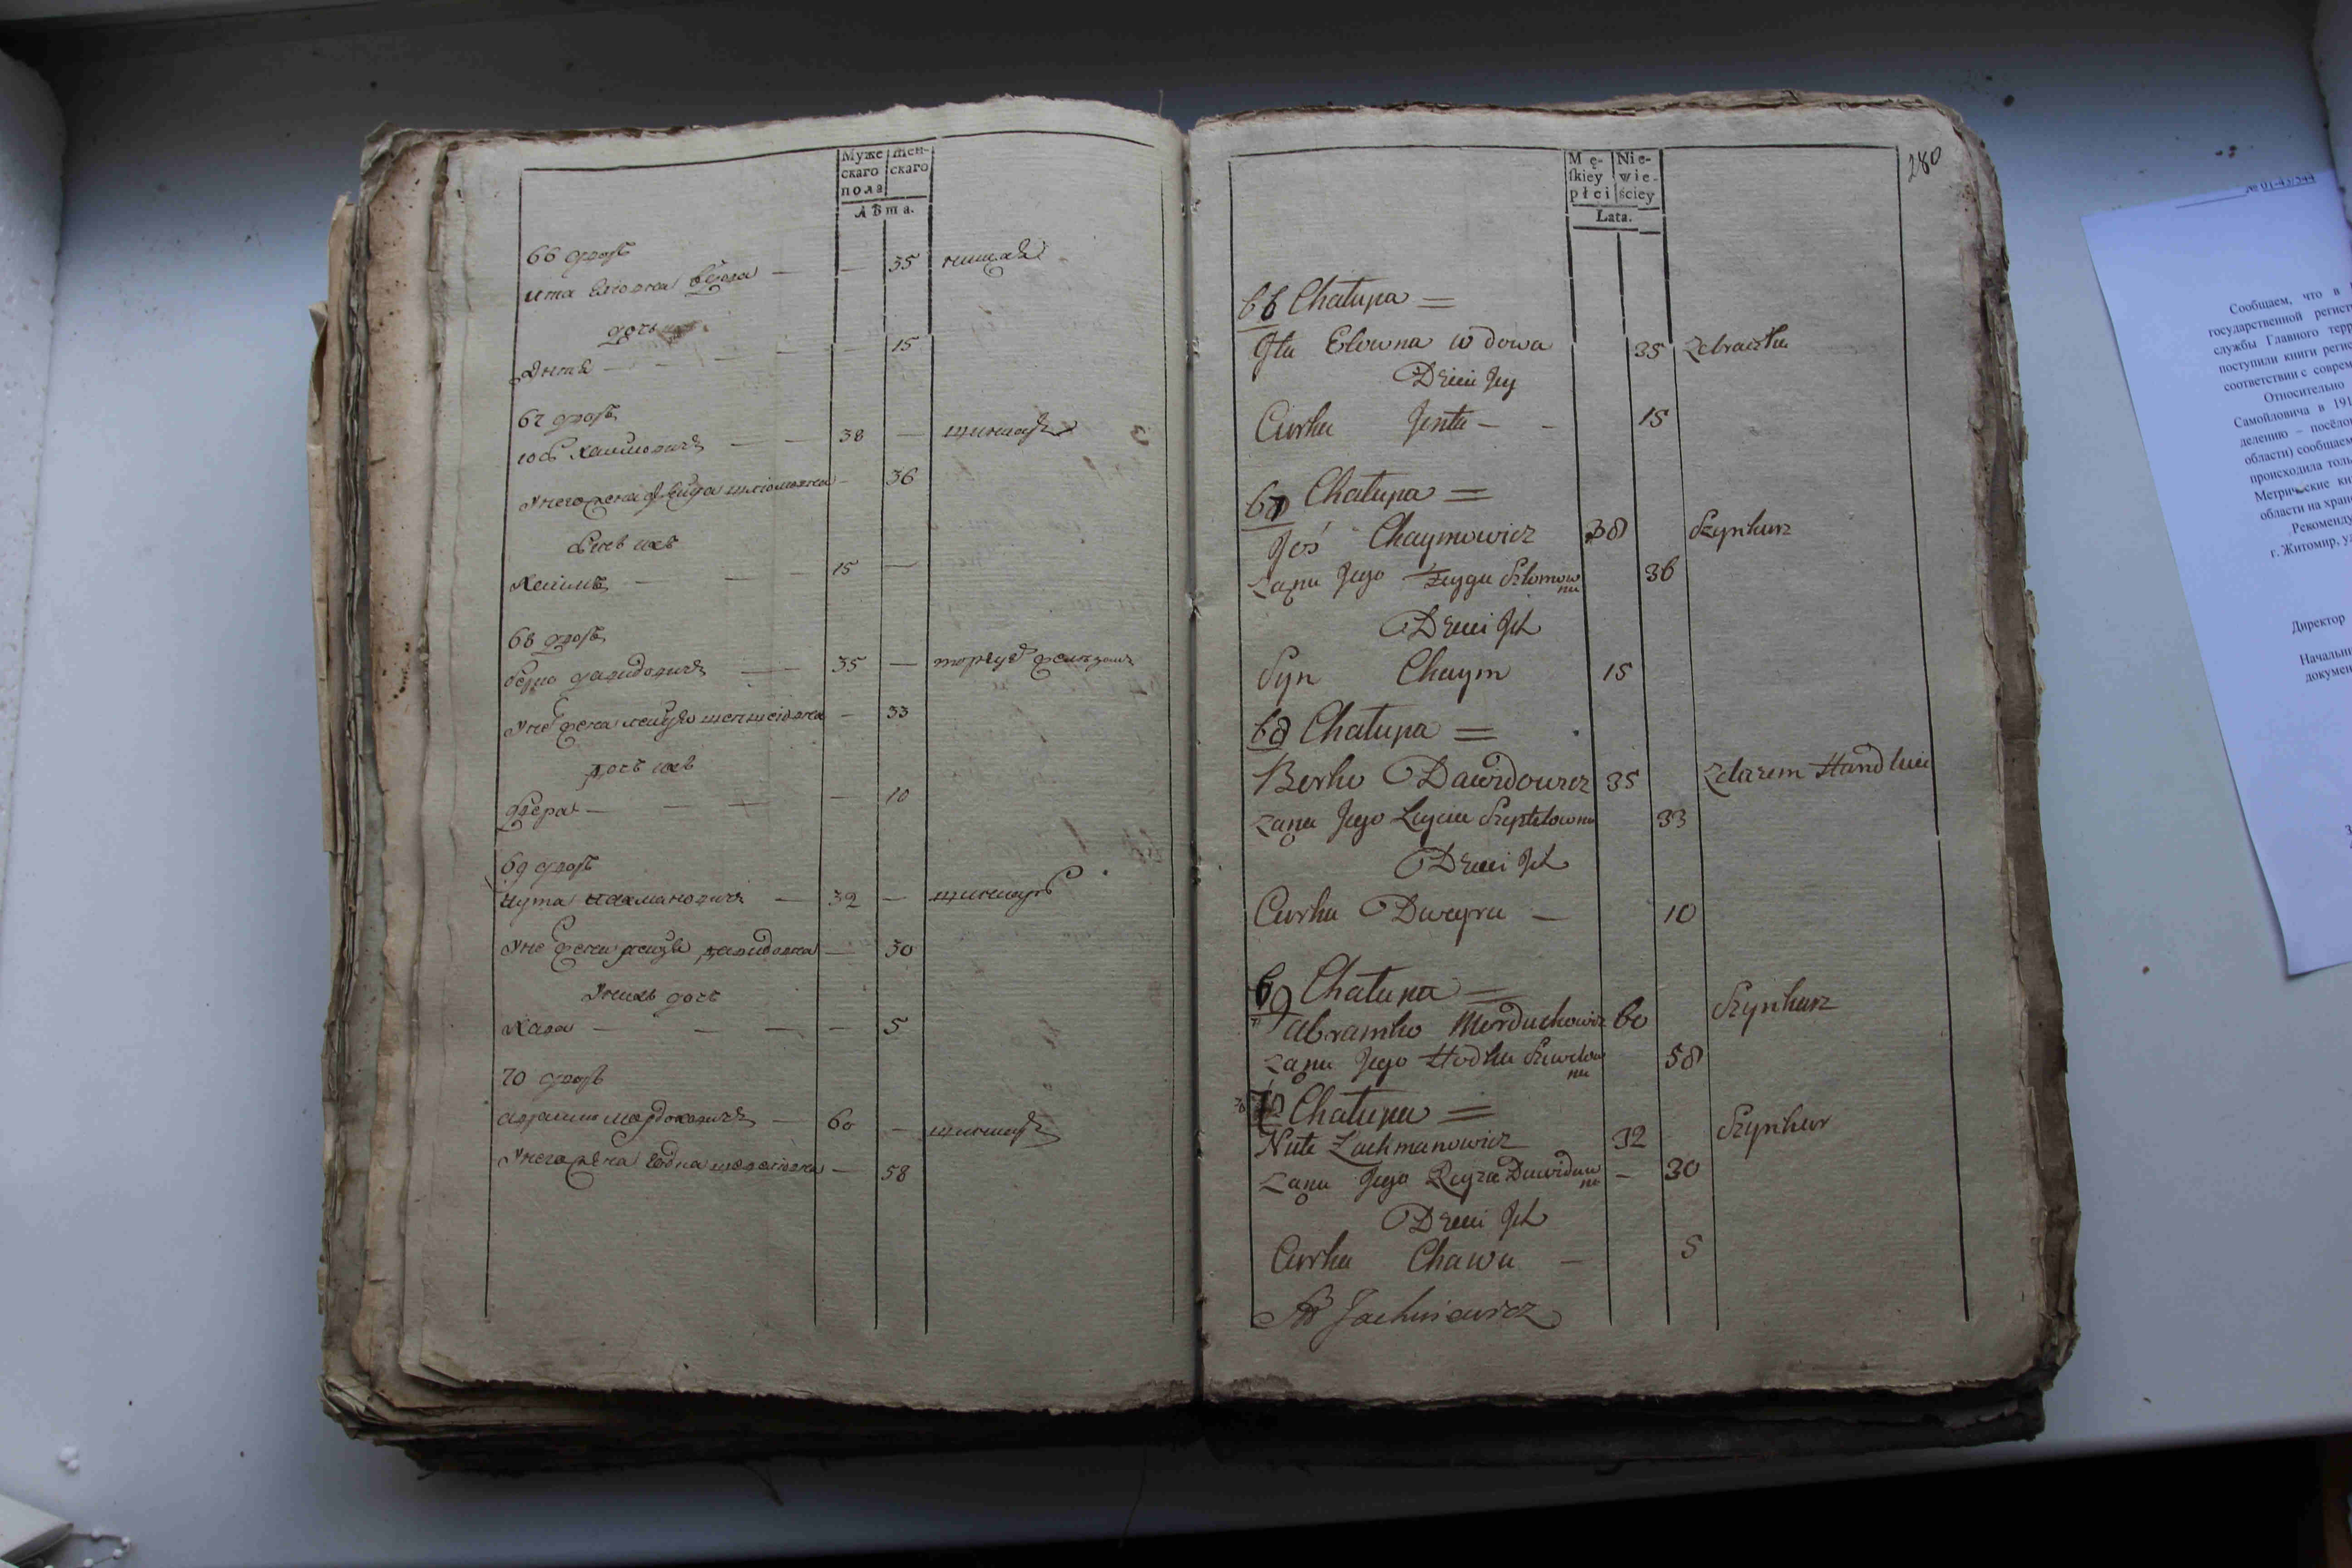 Муже скаго пола
Жен- скаго
Лѣта.
66 дворъ
ита еліовна вдова — — 35 нищая
дочь
Энтя — — — 15
67 дворъ
юсь Хаимовичъ — — 38 — шинкаръ
Унего жена Фейга шліомовна — 36
Сынъ ихъ
Хаимъ — — — 15 —
68 дворъ
берко давидовичъ — — 35 — торгуе железомъ
Унего жена — 33
дочь ихъ
двера — — — — 10
69 дворъ
нута нахмановичъ — 32 — шинкаръ
Унего жена рейзя давидовна — 30
Унихъ дочь
Хава — — — — 5
70 дворъ
аврамко мордоховичъ — 60 — шинкаръ
Унего жена годка — 58
Mę- skiey płci
Nie- wie- ściey
Lata.
280
66 Chałupa =
Jta Elowna wdowa 35 Zebraczka
Dzieci Jey
Curka Jenta - - 15
67 Chałupa =
Joś Chaymowicz 38 Szynkarz
Ząna Jego Feyga Szlomow na 36
Dzieci Jch
Syn Chaym 15
68 Chałupa =
Berko Dawidowicz 35 Zelazem Handluie
Ząna Jego 33
Dzieci Jch
Curka Dwayra — 10
69 Chałupa =
Abramko Morduchowicz 60 Szynkarz
Ząna Jego Hodka 58
70 Chałupa =
Nuta Zachmanowicz 32 Szynkar
Ząna Jego Reyza Dawidow na — 30
Dzieci Jch
Curka Chawa — 5
Jachniewicz
№ 01-43/344
Сообщаем, что в
государственной регист
службы Главного терр
поступили книги регис
соответствии с соврем
Относительно
Самойловича в 191
делению – посёло
области) сообщаем
происходила толь
Метрические кн
области на хран
Рекоменду
г. Житомир, у
Директор
Начальни
докумен